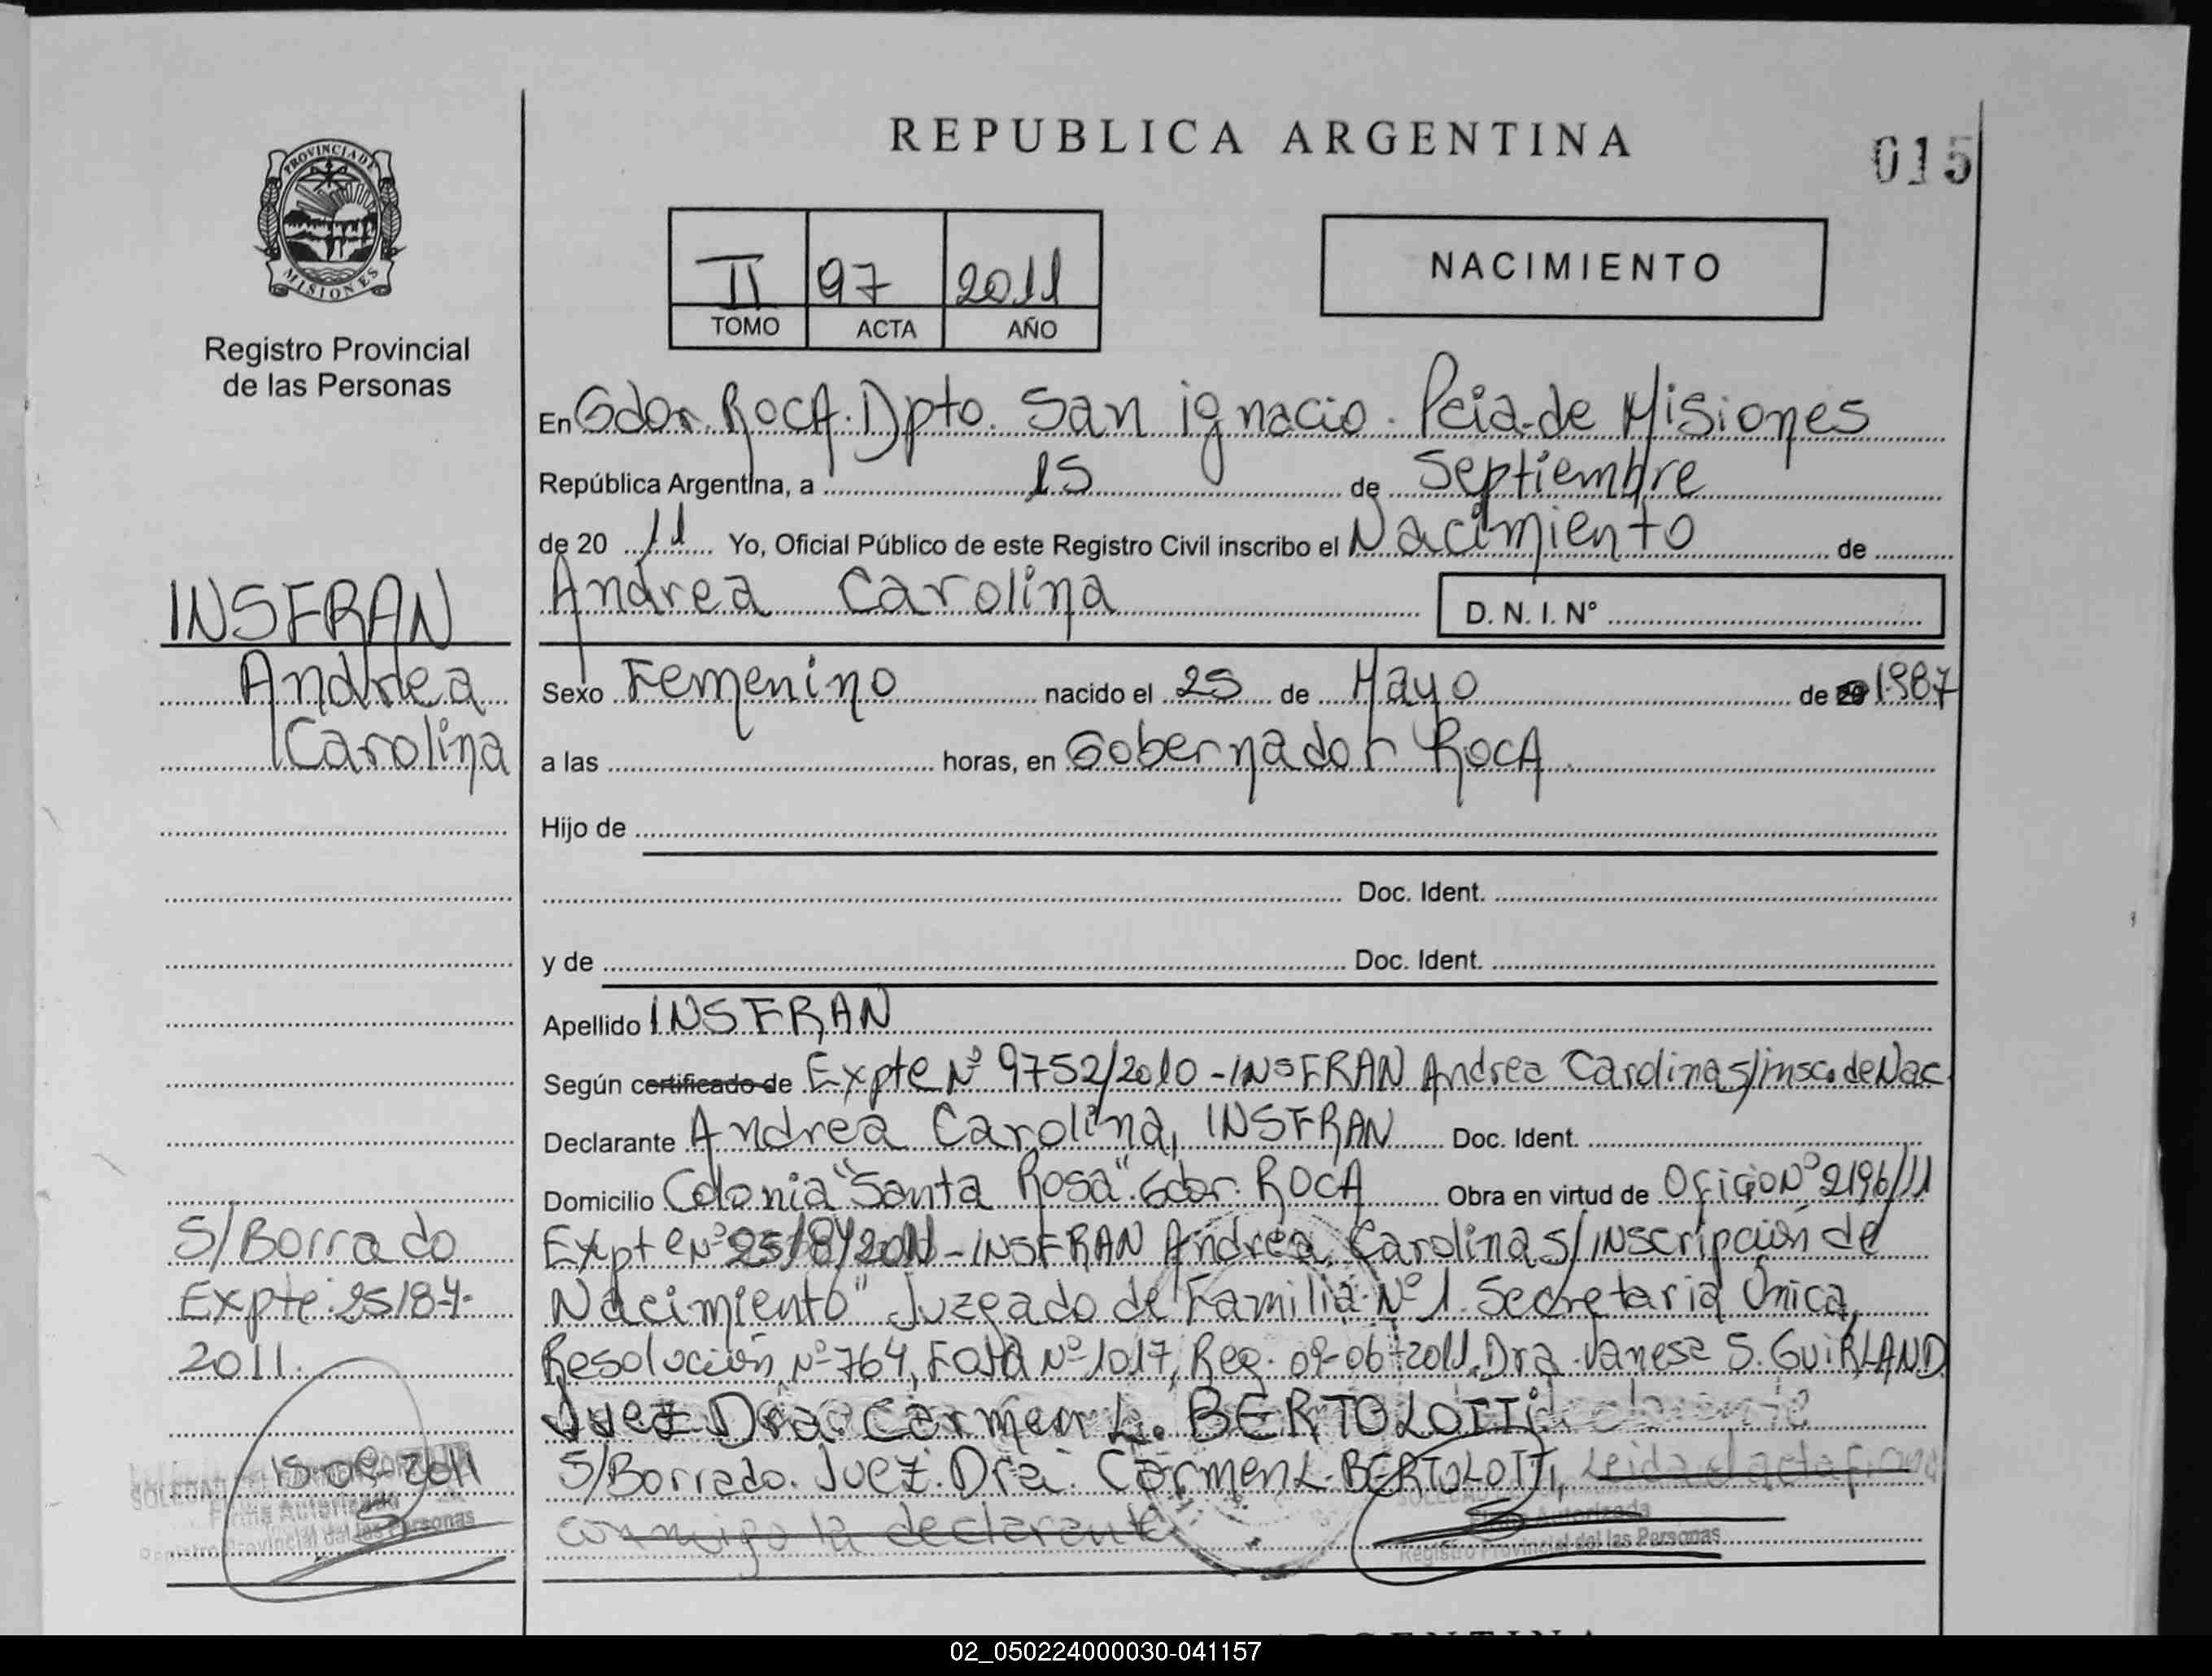 REPUBLICA ARGENTINA
015
PROVINCIA DE
MISIONES
Registro Provincial
de las Personas
II 97 2011
TOMO ACTA AÑO
NACIMIENTO
En Gdor. ROCA. Dpto. San ignacio. Pcia de Misiones
República Argentina, a 15 de Septiembre
de 20 11 Yo, Oficial Público de este Registro Civil inscribo el Nacimiento de
Andrea Carolina D. N. I. Nº
INSFRAN
Andrea
Carolina
Sexo Femenino nacido el 25 de Mayo de 20 1987
a las horas, en Gobernador ROCA
Hijo de
Doc. Ident.
y de Doc. Ident.
Apellido INSFRAN
Según certificado de Expte Nº 9752/2010 - INSFRAN Andrea Carolina s/insc. de Nac
Declarante Andrea Carolina, INSFRAN Doc. Ident.
Domicilio Colonia "Santa Rosa" Gdor. ROCA Obra en virtud de Oficio Nº 2196/11
Expte Nº 25184/2011 - INSFRAN Andrea Carolina s/INscripción de
Nacimiento" Juzgado de Familia Nº 1. Secretaria Única,
Resolución Nº 764, Fojа Nº 1017, Reg. 09-06-2011. Dra. Vanesa S. GuiRLAND
Juez Dra. Carmen L. BERTOLOTTI
S/Borrado. Juez. Dra. Carmen L. BERTOLOTTI, Leida el acta firma
conmigo la declarante
S/Borrado
Expte. 25184-
2011.
15-09-2011
SOLEDAD
Firma Autorizada
Registro Provincial del las Personas
SOLEDAD
Firma Autorizada
Registro Provincial del las Personas
02_050224000030-041157